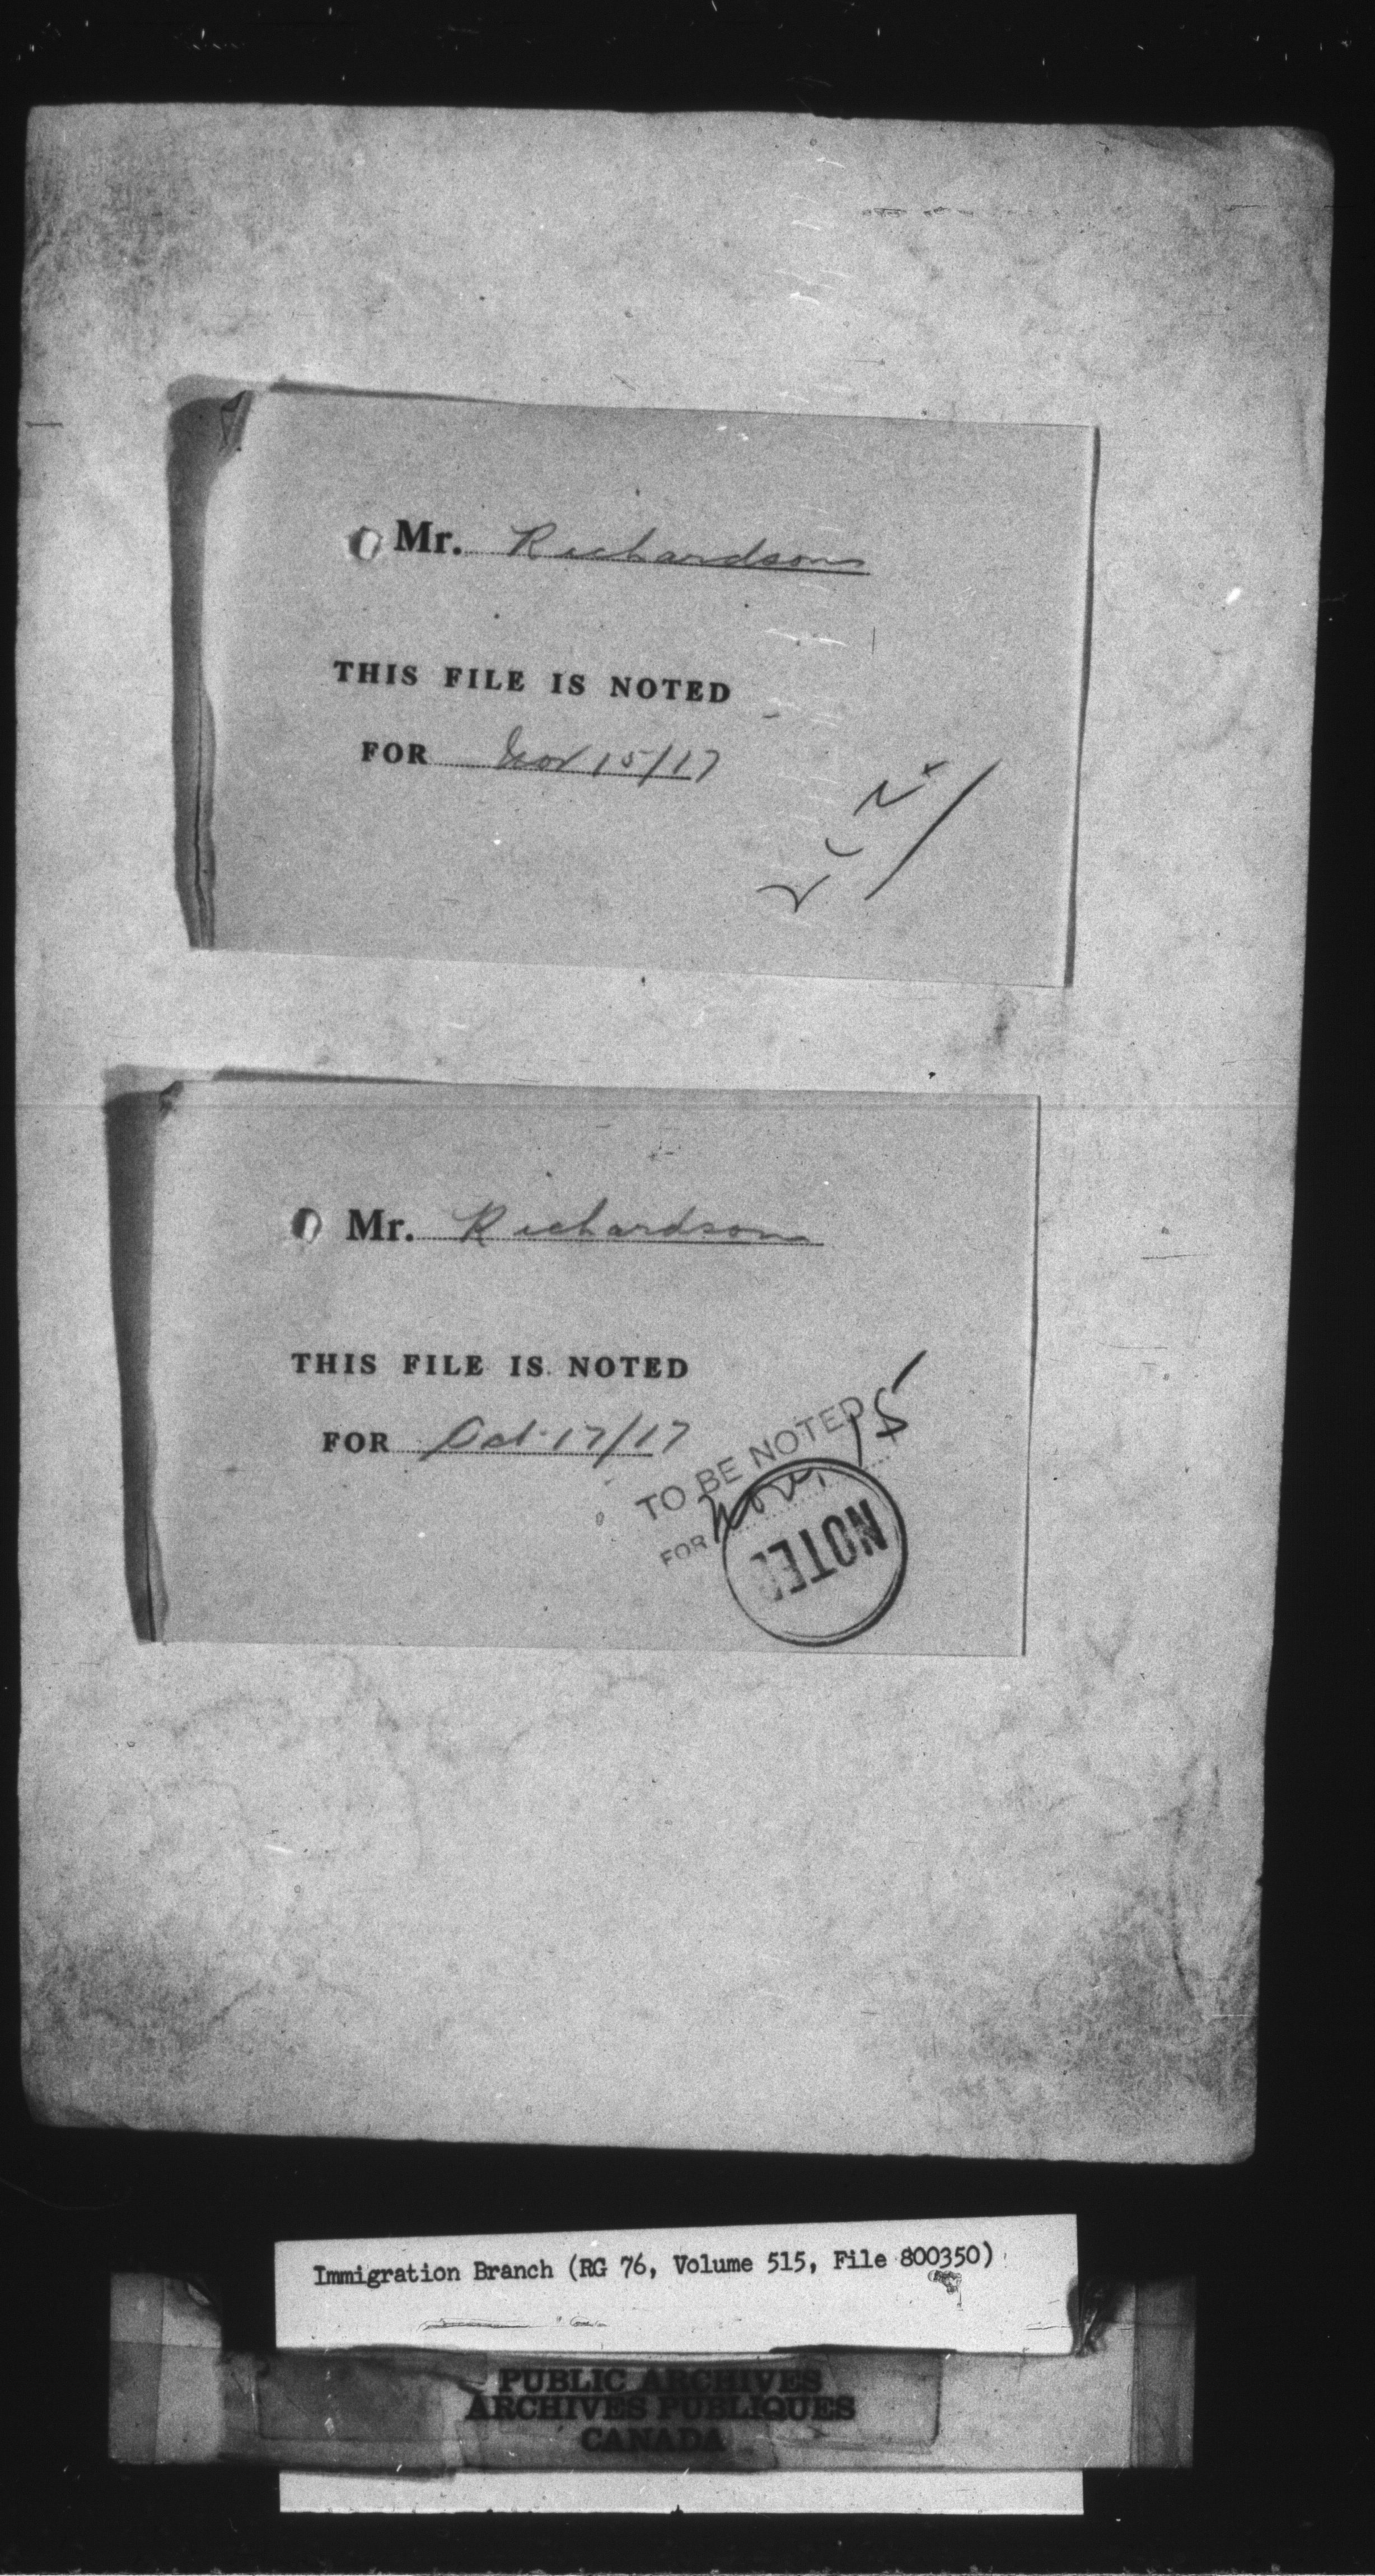 Mr. Richardson
THIS FILE IS NOTED
FOR Nov 15/17
Mr. Richardson
THIS FILE IS NOTED
FOR Oct 17/17
TO BE NOTED
FOR Nov. 15
NOTED
Immigration Branch (RG 76, Volume 515, File 800350)
PUBLIC ARCHIVES
ARCHIVES PUBLIQUES
CANADA